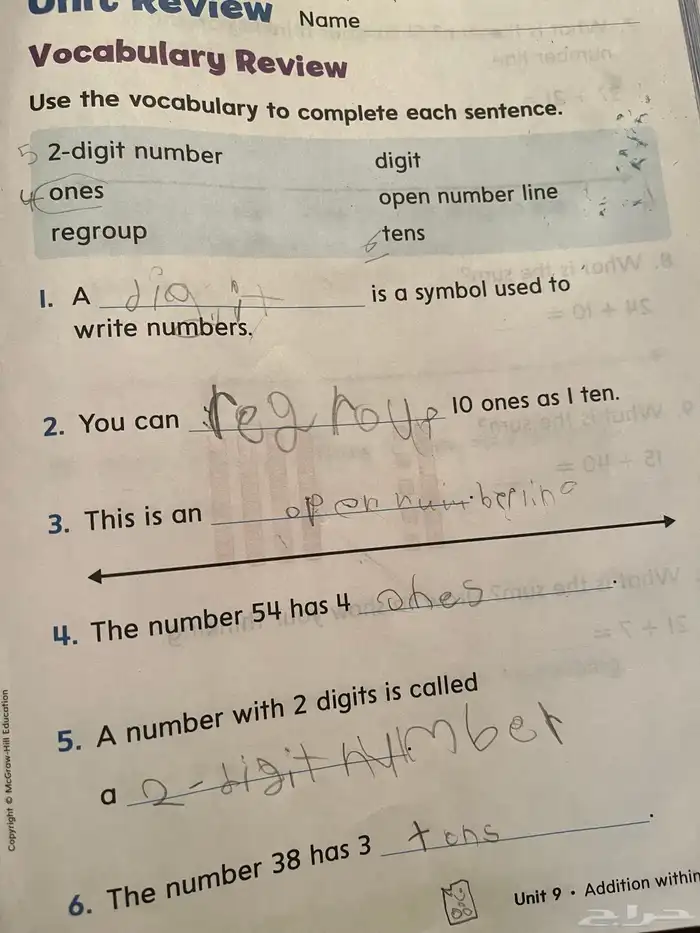 Unit Review Name
Vocabulary Review
Use the vocabulary to complete each sentence.
5 2-digit number digit
4 ones open number line
regroup 6 tens
1. A digit is a symbol used to
write numbers.
2. You can regroup 10 ones as 1 ten.
3. This is an open number line
4. The number 54 has 4 ones.
5. A number with 2 digits is called
a 2-digit number.
6. The number 38 has 3 tens.
Unit 9 • Addition within
Copyright © McGraw-Hill Education
حراج